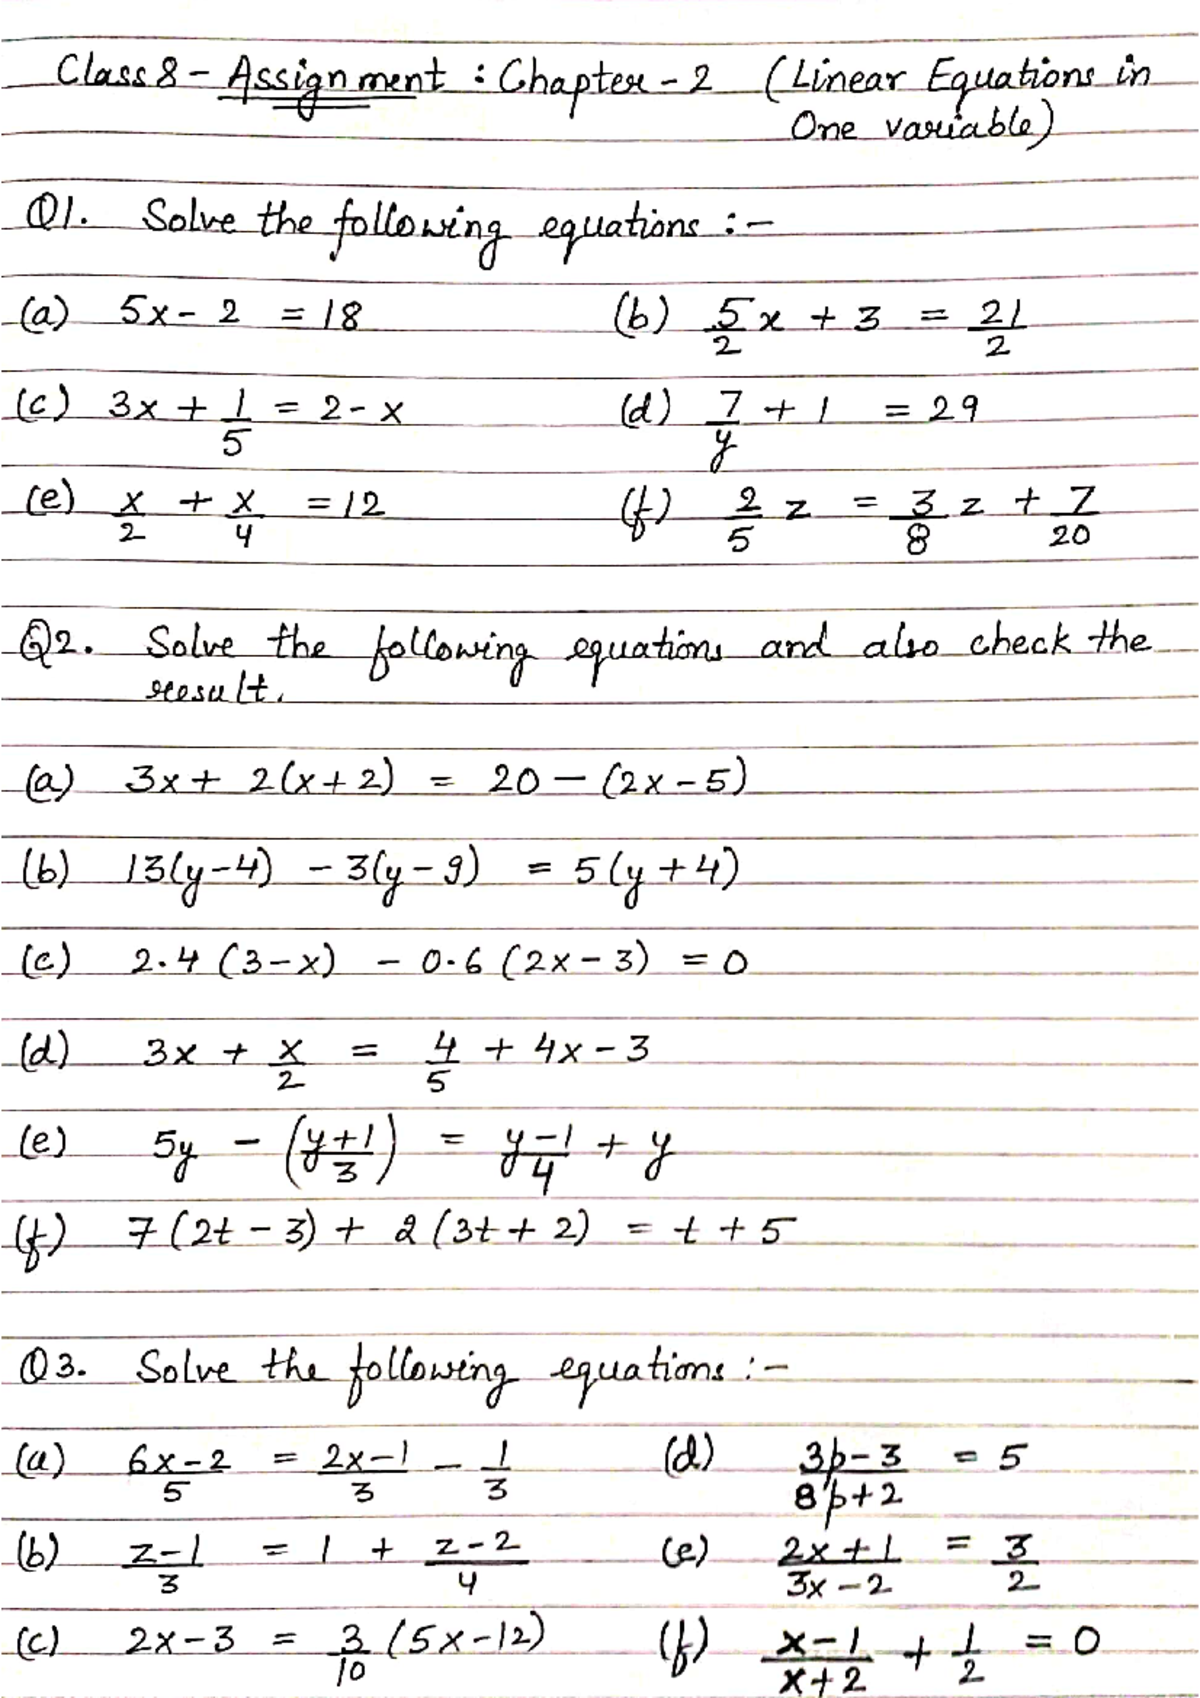 Class 8 - Assignment : Chapter - 2 (Linear Equations in
One variable)
Q1. Solve the following equations :-
(a) 5x - 2 = 18 (b) 5/2 x + 3 = 21/2
(c) 3x + 1/5 = 2 - x (d) 7/y + 1 = 29
(e) x/2 + x/4 = 12 (f) 2/5 z = 3/8 z + 7/20
Q2. Solve the following equations and also check the
result.
(a) 3x + 2(x + 2) = 20 - (2x - 5)
(b) 13(y - 4) - 3(y - 9) = 5(y + 4)
(c) 2.4 (3 - x) - 0.6 (2x - 3) = 0
(d) 3x + x/2 = 4/5 + 4x - 3
(e) 5y - ((y + 1)/3) = (y - 1)/4 + y
(f) 7(2t - 3) + 2(3t + 2) = t + 5
Q3. Solve the following equations :-
(a) (6x - 2)/5 = (2x - 1)/3 - 1/3 (d) (3p - 3)/(8p + 2) = 5
(b) (z - 1)/3 = 1 + (z - 2)/4 (e) (2x + 1)/(3x - 2) = 3/2
(c) 2x - 3 = 3/10 (5x - 12) (f) (x - 1)/(x + 2) + 1/2 = 0